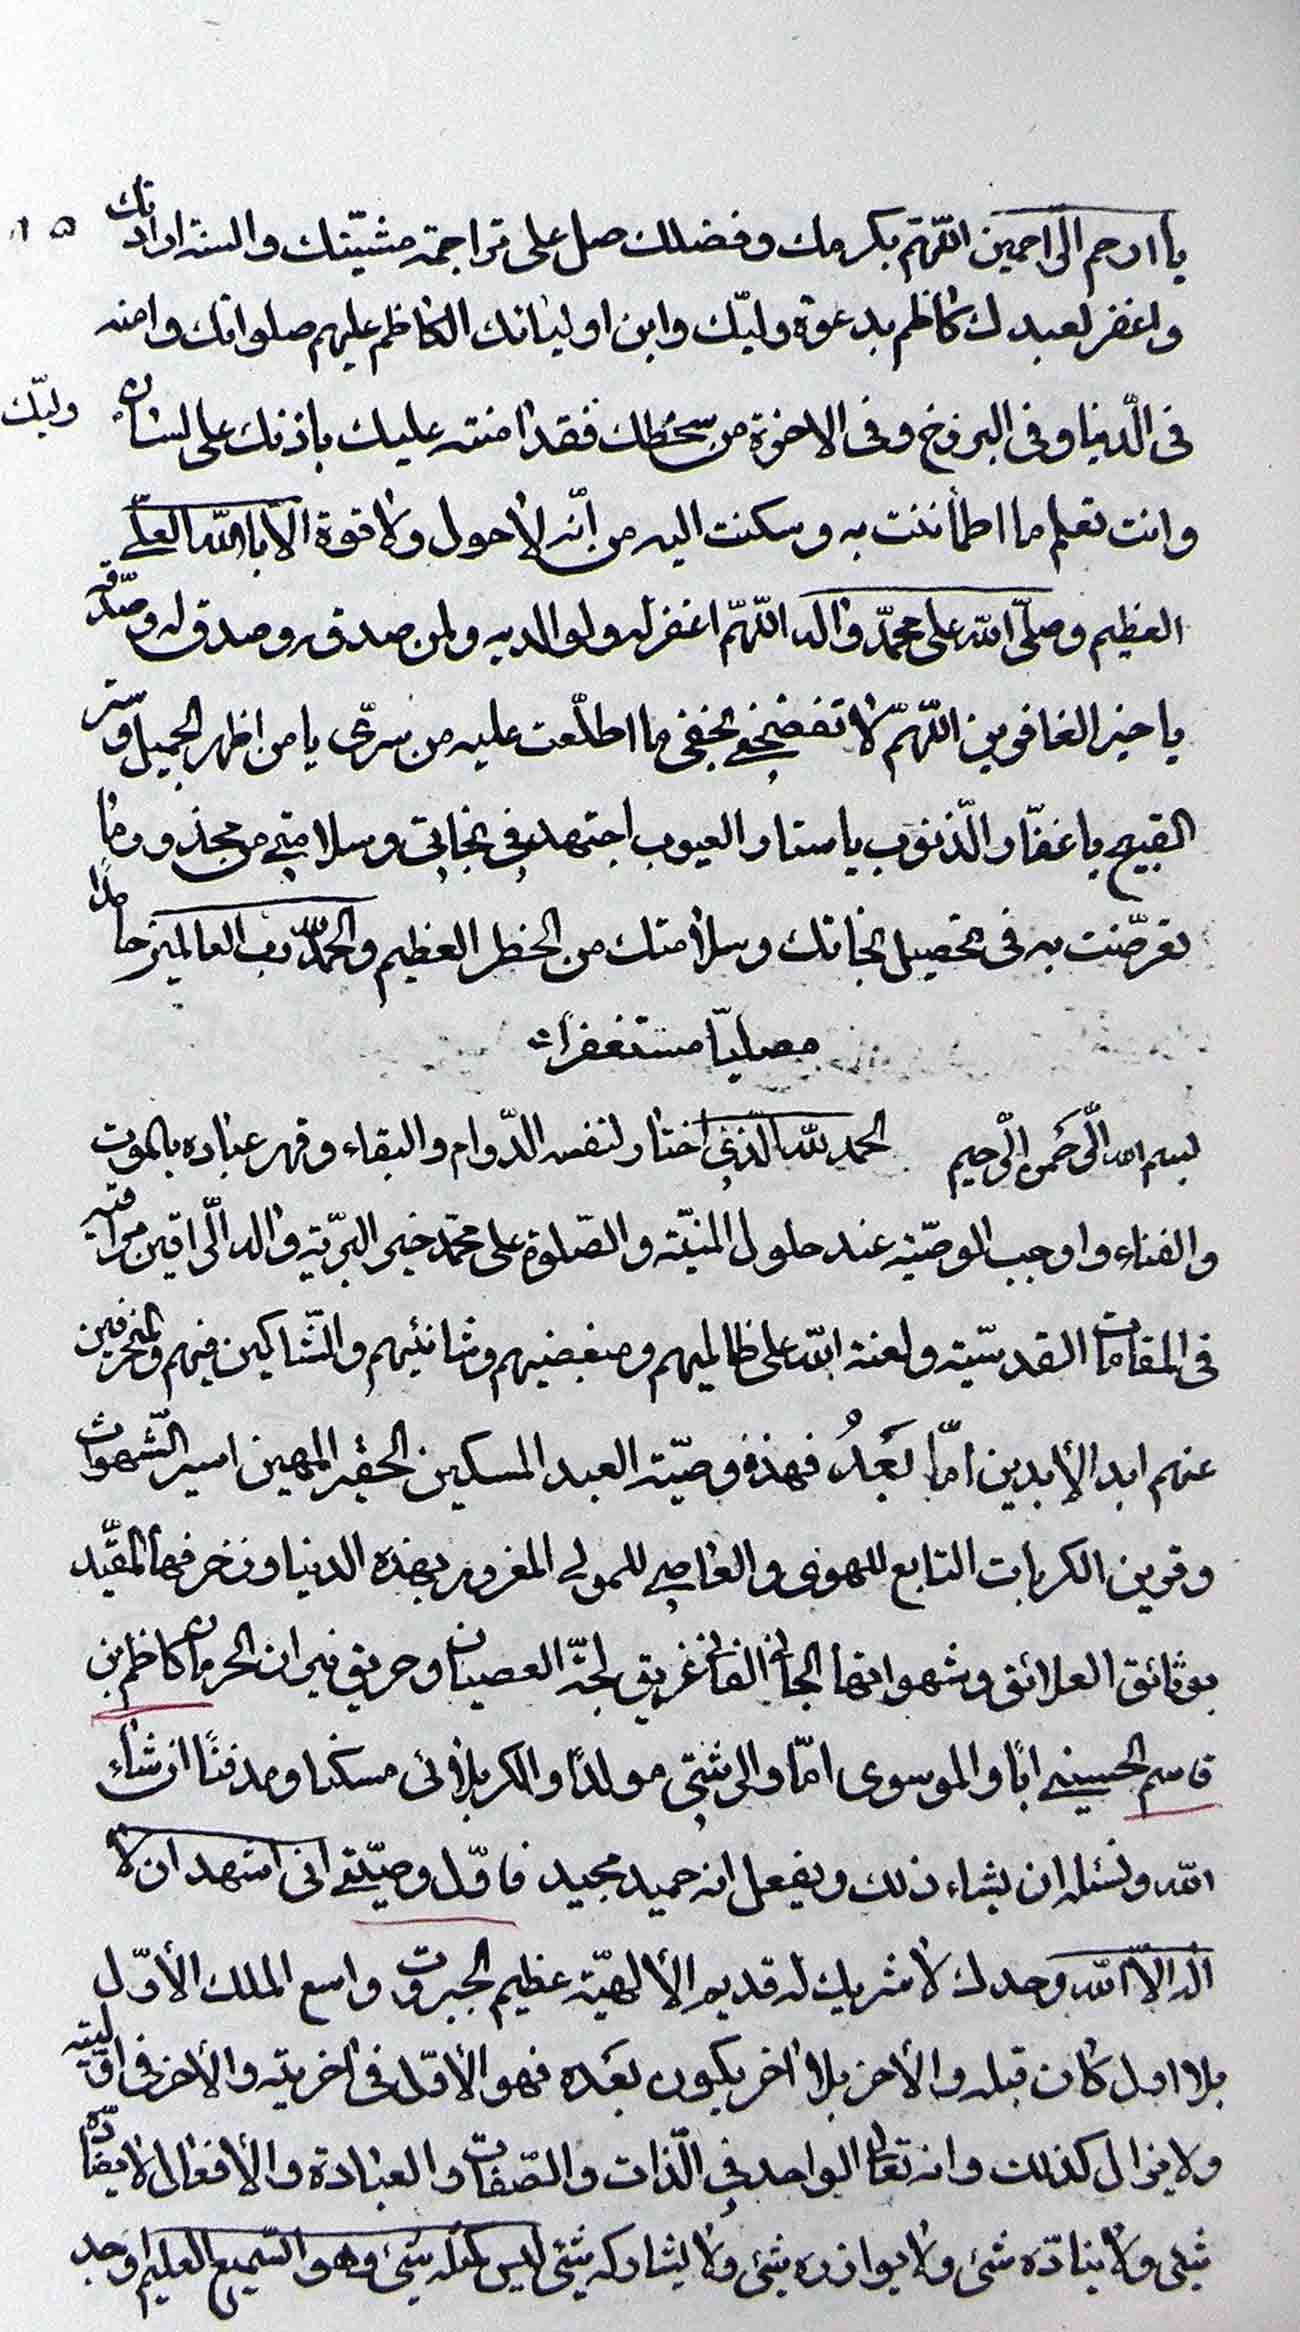 ١٥
يا ارحم الرّاحمين اللّهمّ بكرمك وفضلك صل على تراجمة مشيّتك والسنة ارادتك
واغفر لعبدك كاظم بدعوة وليّك وابن اوليائك الكاظم عليهم صلواتك وامنه
فى الدّنيا وفى البرزخ وفى الاخرة من سخطك فقد امنته عليك باذنك على لسان وليّك
وانت تعلم ما اطمأننت به وسكنت اليه من انّه لا حول ولا قوة الّا بالله العلى
العظيم وصلّى الله على محمّد واله اللّهمّ اغفر له ولوالديه ولمن صدقه وصدق له وصدّقه
يا خير الغافرين اللّهمّ لا تفضحنى بخفى ما اطلّعت عليه من سرّى يا من اظهر الجميل وستر
القبيح يا غفّار الذّنوب يا ستار العيوب اجتهد فى نجاتى وسلامتى من محذور ما
تعرّضت به فى تحصيل نجاتك وسلامتك من الخطر العظيم والحمد لله رب العالمين حامدًا
مصليًا مستغفرًا
بسم الله الرّحمن الرّحيم الحمد لله الّذى اختار لنفسه الدّوام والبقاء وقهر عباده بالموت
والفناء واوجب الوصيّة عند حلول المنيّة والصّلوة على محمّد خير البريّة واله الرّاقين مراقيه
فى المقامات القدسيّة ولعنة الله على ظالميهم ومبغضيهم وشانئيهم والشّاكين فيهم والمنحرفين
عنهم ابد الأبدين امّا بَعَدُ فهذه وصيّة العبد المسكين الحقير المهين اسير الشّهوات
وقرين الكربات التابع للهوى والعاصى للمولى المغرور بهذه الدنيا وزخرفها المقيّد
بوثائق العلائق وشهواتها الجانى الفانى غريق لجّة العصيان وحريق نيران الحرمان كاظم بن
قاسم الحسينى ابًا والموسوى امّا والرشتى مولدًا والكربلائى مسكنا ومدفنًا ان شاء
الله ونسئله ان يشاء ذلك ويفعل انه حميد مجيد فاوّل وصيّتى انى اشهد ان لا
اله الّا الله وحدك لا شريك له قديم الألهيّة عظيم الجبروت واسع الملك الأوّل
بلا اول كان قبله والأخر بلا اخر يكون بعده فهو الأوّل فى اخريته والأخر فى اوّليّته
ولا يزال كذلك وانه تعالى الواحد فى الذّات والصّفات والعبادة والأفعال لا يضادّه
شئى ولا ينادّه شئى ولا يوازره شئى ولا يشاركه شئى ليس كمثله شئى وهو السّميع العليم اوجد